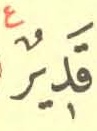 ع
قَدِيرٌ